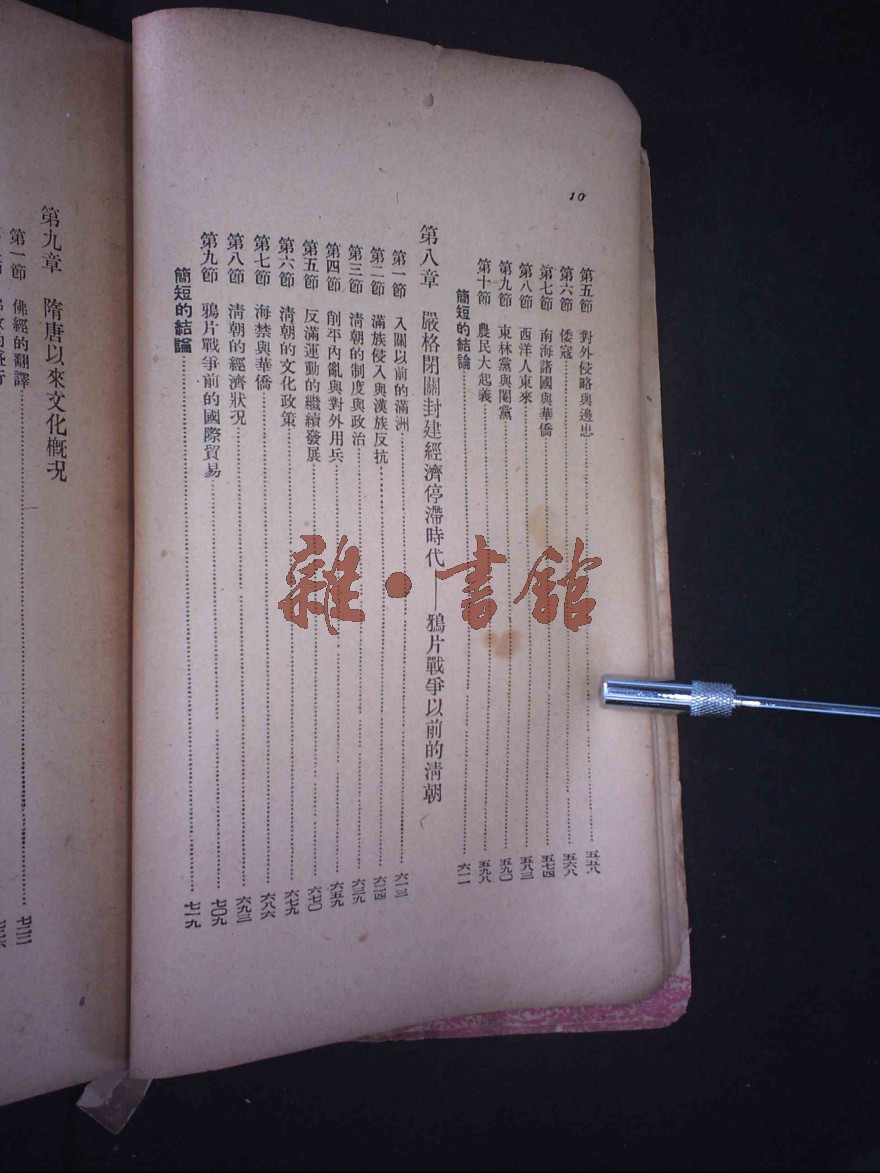 10
第五節 對外侵略與邊患 五五八
第六節 倭寇 五六八
第七節 南海諸國與華僑 五七四
第八節 西洋人東來 五八三
第九節 東林黨與閹黨 五九〇
第十節 農民大起義 五九八
簡短的結論 六一一
第八章 嚴格閉關封建經濟停滯時代——鴉片戰爭以前的清朝
第一節 入關以前的滿洲 六一三
第二節 滿族侵入與漢族反抗 六二四
第三節 清朝的制度與政治 六三九
第四節 削平內亂與對外用兵 六五九
第五節 反滿運動的繼續發展 六七〇
第六節 清朝的文化政策 六七九
第七節 海禁與華僑 六八六
第八節 清朝的經濟狀況 六九三
第九節 鴉片戰爭前的國際貿易 七〇九
簡短的結論 七一九
第九章 隋唐以來文化概況
第一節 佛經的翻譯
雜·書館